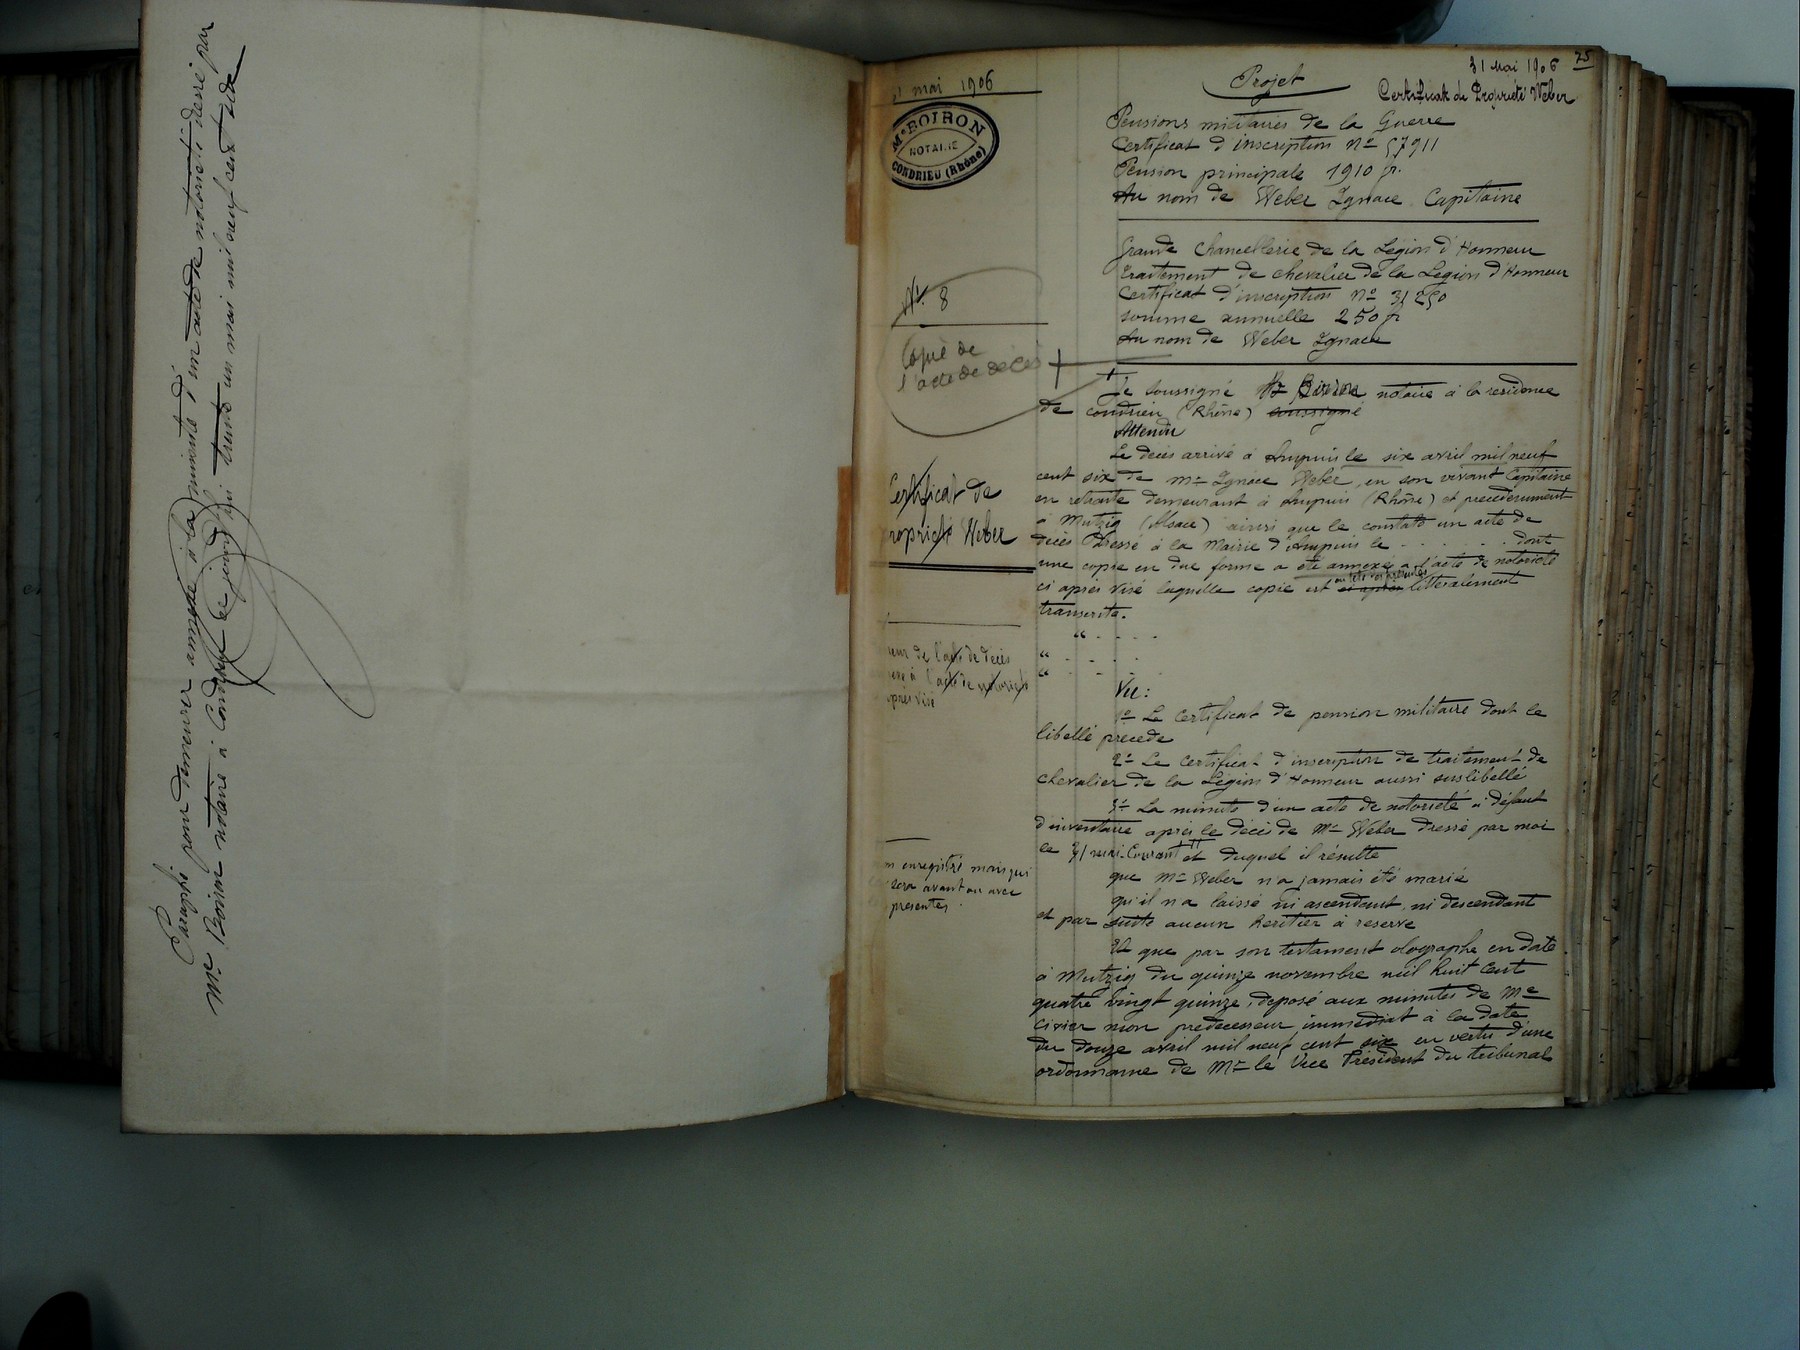 Paraphé pour demeurer annexé à la minute d'un acte de notoriété dressé par
Me Boiron notaire à Condrieu ce jourd'hui trente un mai mil neuf cent six
31 mai 1906
Me BOIRON
NOTAIRE
CONDRIEU (Rhône)
No. 8
Copie de
l'acte de décès
Certificat de
propriété Weber
teneur de l'acte de décès
annexé à l'acte de notoriété
après visé
non enregistré mais qui
le sera avant ou avec
les présentes.
75
31 Mai 1906
Certificat de Propriété Weber
Projet
Pensions militaires de la Guerre
Certificat d'inscription No 57911
Pension principale 1910 fr.
Au nom de Weber Ignace Capitaine
Grande Chancellerie de la Légion d'Honneur
Traitement de chevalier de la Légion d'Honneur
Certificat d'inscription No 31250
somme annuelle 250 fr
Au nom de Weber Ignace
Je soussigné Me Boiron notaire à la résidence
de Condrieu (Rhône) soussigné
Attendu
Le décès arrivé à Ampuis le six avril mil neuf
cent six de Mr Ignace Weber, en son vivant Capitaine
en retraite demeurant à Ampuis (Rhône) et précédemment
à Mutzig (Alsace) ainsi que le constate un acte de
décès dressé à la Mairie d'Ampuis le . . . . . . . dont
une copie en due forme a été annexée à l'acte de notoriété
ci après visé laquelle copie est ci après littéralement
transcrite.
" . . . .
" . . . .
" . . . .
Vu :
1o Le Certificat de pension militaire dont le
libellé précède
2o Le certificat d'inscription de traitement de
chevalier de la Légion d'Honneur aussi suslibellé
3o La minute d'un acte de notoriété à défaut
d'inventaire après le décès de Mr Weber dressé par moi
le 31 mai courant et duquel il résulte
que Mr Weber n'a jamais été marié
qu'il n'a laissé ni ascendant, ni descendant
et par suite aucun héritier à réserve
Et que par son testament olographe en date
à Mutzig du quinze novembre mil huit cent
quatre vingt quinze, déposé aux minutes de Me
Civier mon prédécesseur immédiat à la date
du douze avril mil neuf cent six en vertu d'une
ordonnance de Mr le Vice Président du tribunal